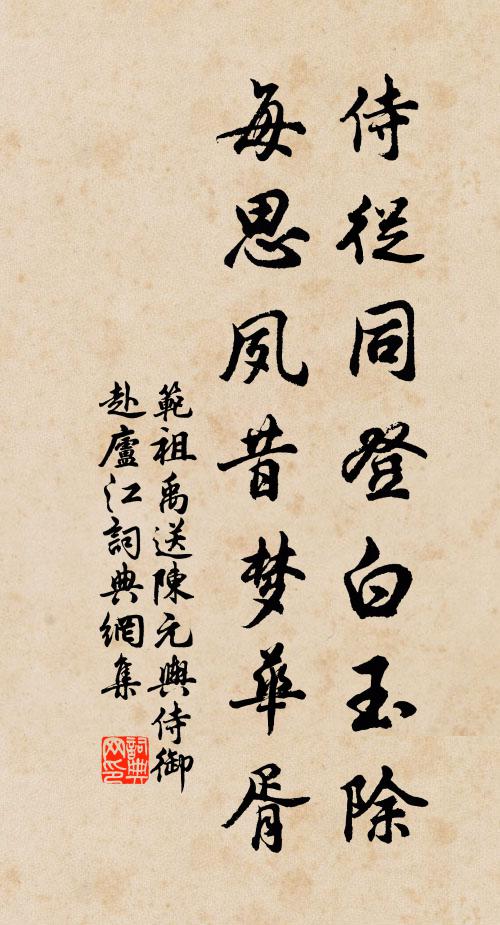 侍從同登白玉除
每思夙昔梦華胥
範祖禹送陳元輿侍御
赴廬江詞典網集
詞典
网印